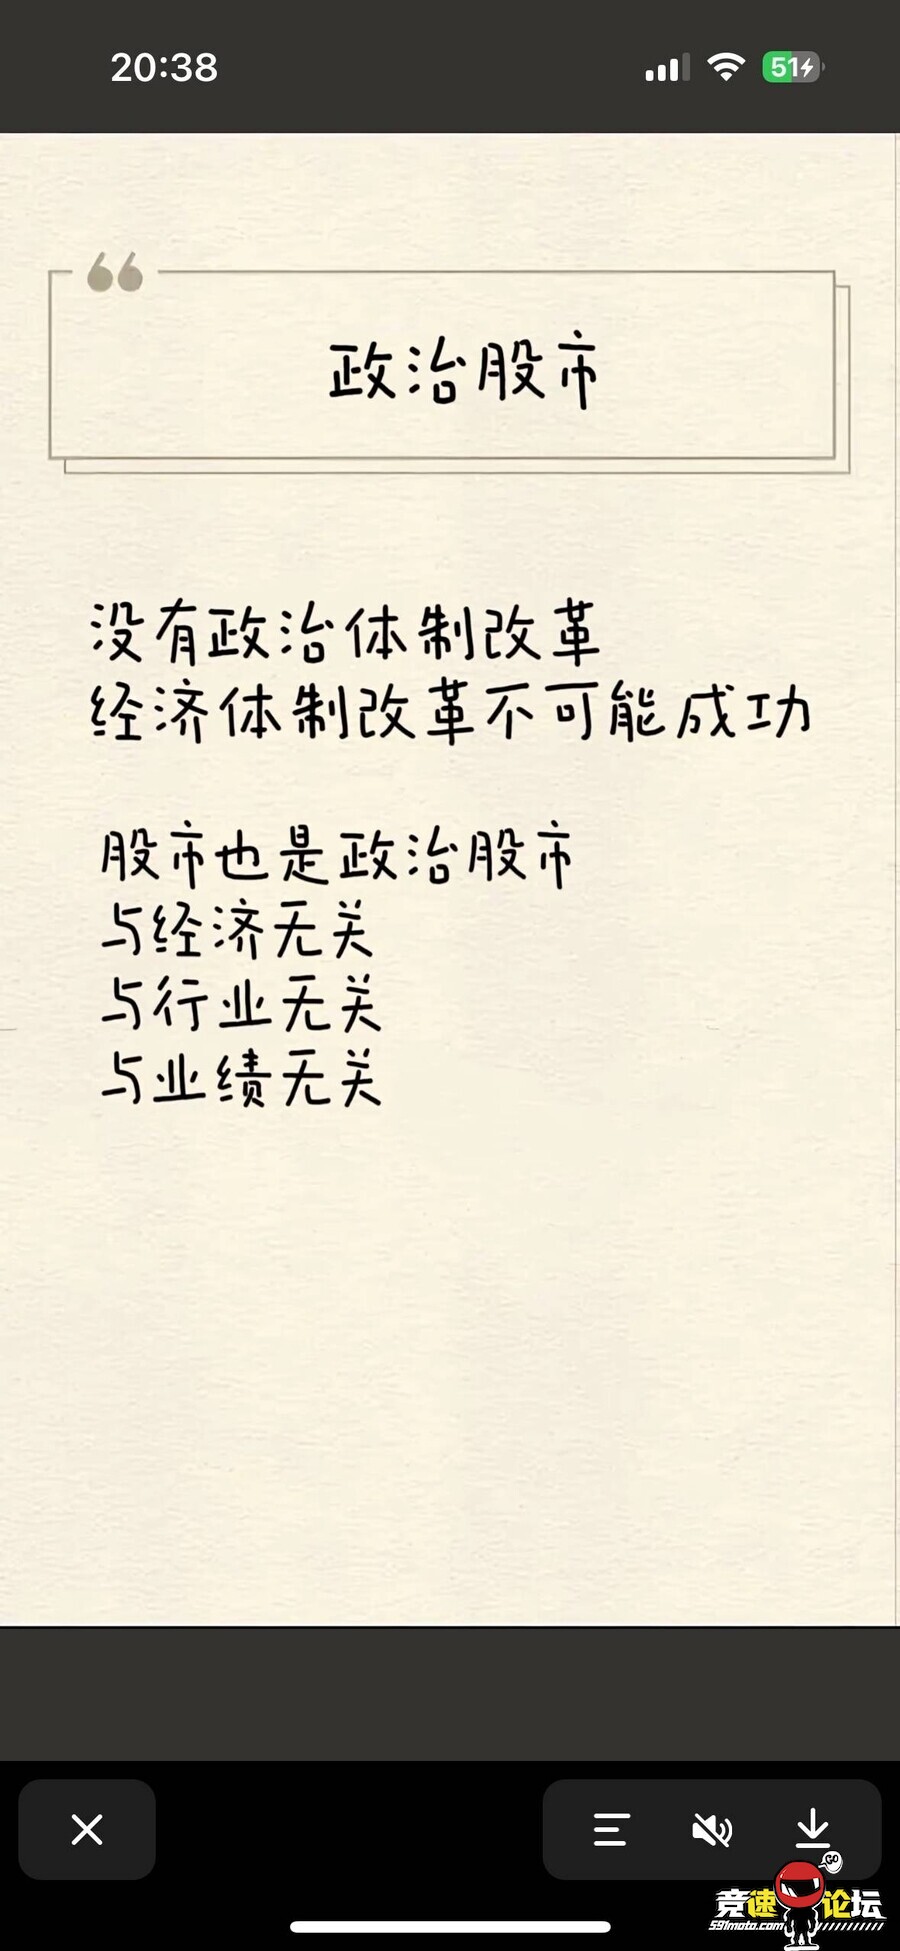 20:38
51
政治股市
没有政治体制改革
经济体制改革不可能成功
股市也是政治股市
与经济无关
与行业无关
与业绩无关
GO
竞速论坛
591moto.com